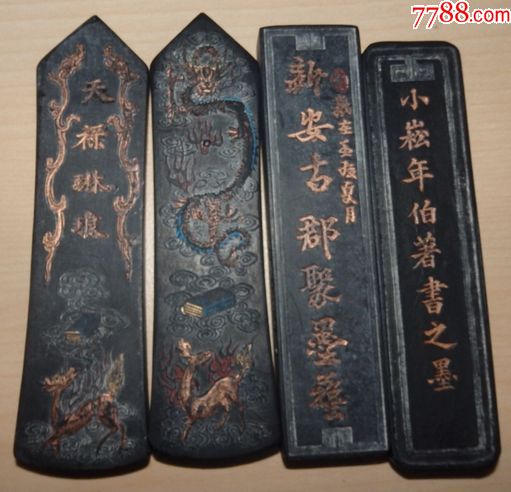 7788.com
天祿琳琅
歲在夏月
新安古郡聚墨藝
小崧年伯著書之墨